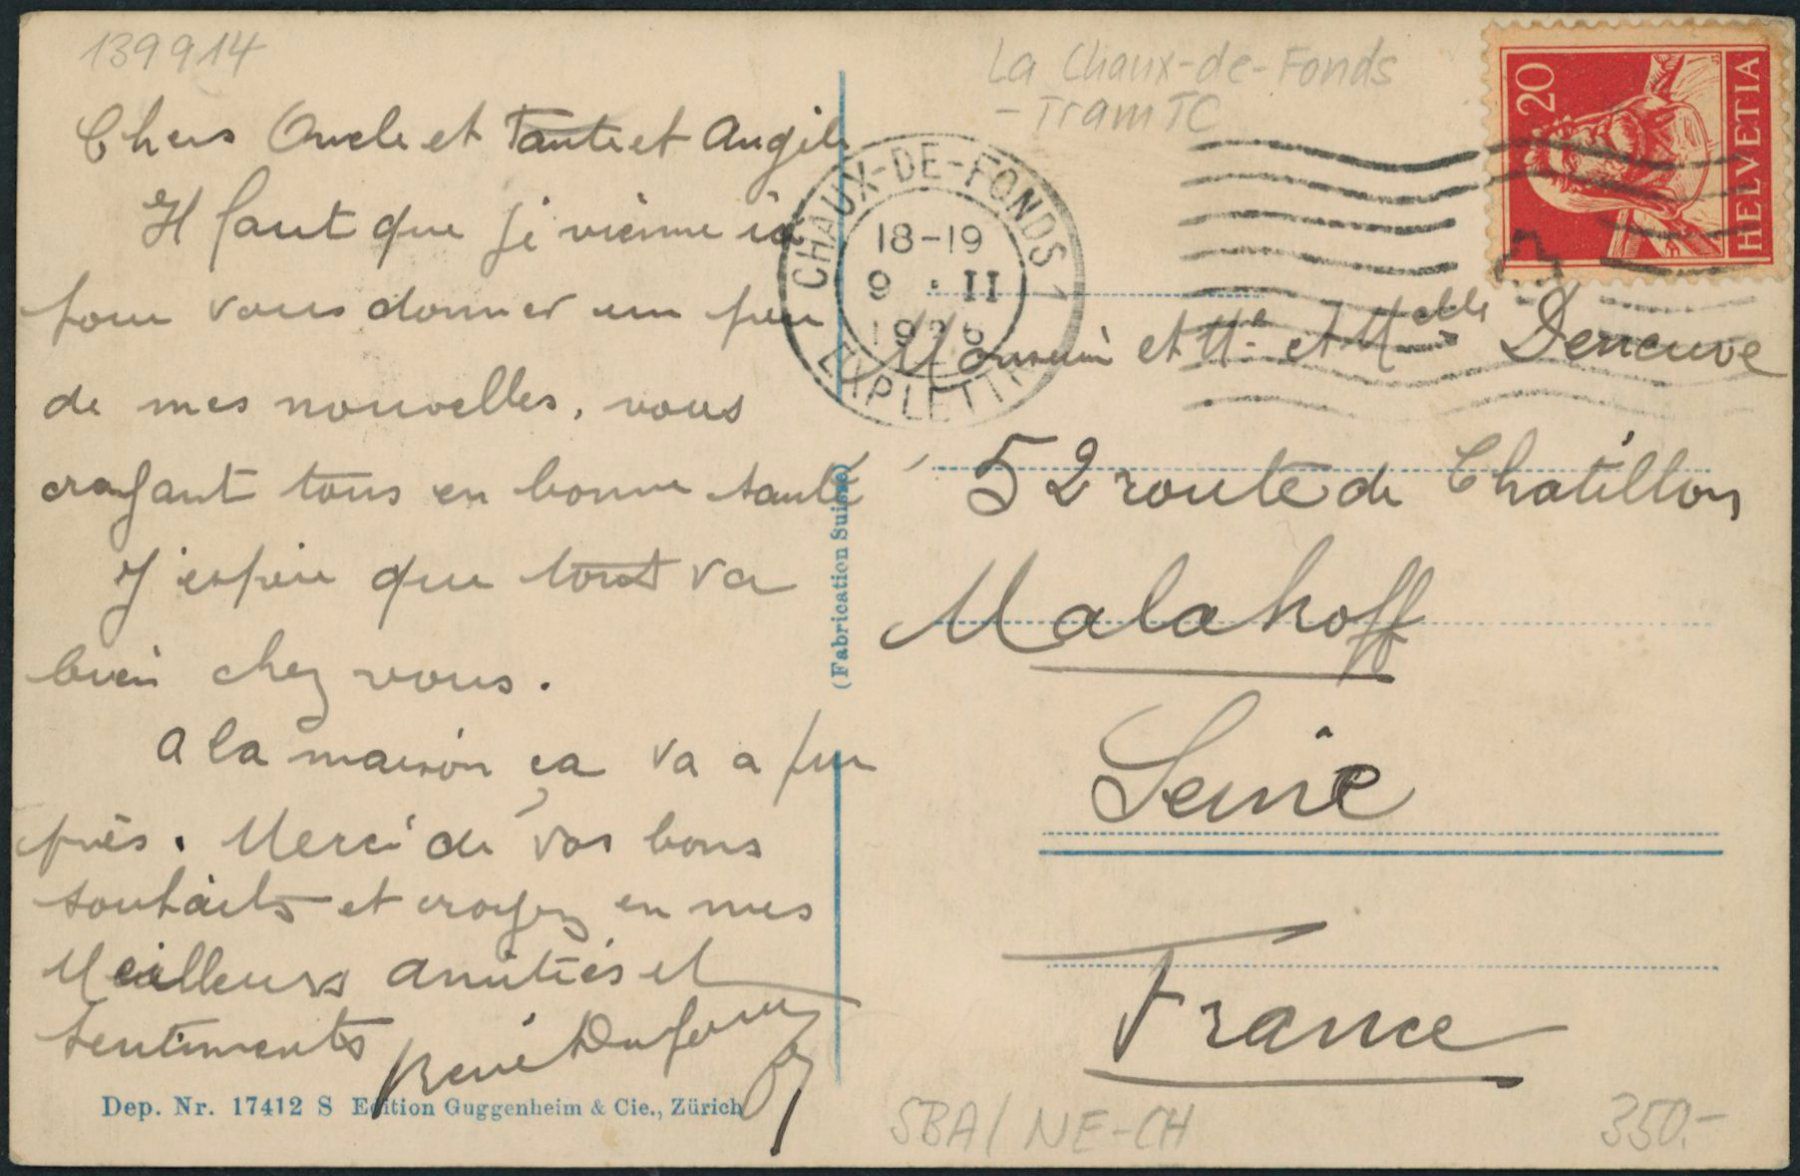 139914
Chers Oncle et Tante et Angèle
Il faut que je vienne ici
pour vous donner un peu
de mes nouvelles, vous
croyant tous en bonne santé
J'espère que tout va
bien chez vous.
A la maison ça va a peu
près. Merci de vos bons
souhaits et croyez en mes
Meilleurs amitiés et
sentiments René Dufour
Dep. Nr. 17412 S Edition Guggenheim & Cie., Zürich
(Fabrication Suisse)
La Chaux-de-Fonds
- Tram TC
20 HELVETIA
CHAUX-DE-FONDS 1
18-19
9 · II
1926
Monsieur et Me et Melle Derneuve
52 route de Chatillon
Malakoff
Seine
France
SBA/ NE-CH
350.-